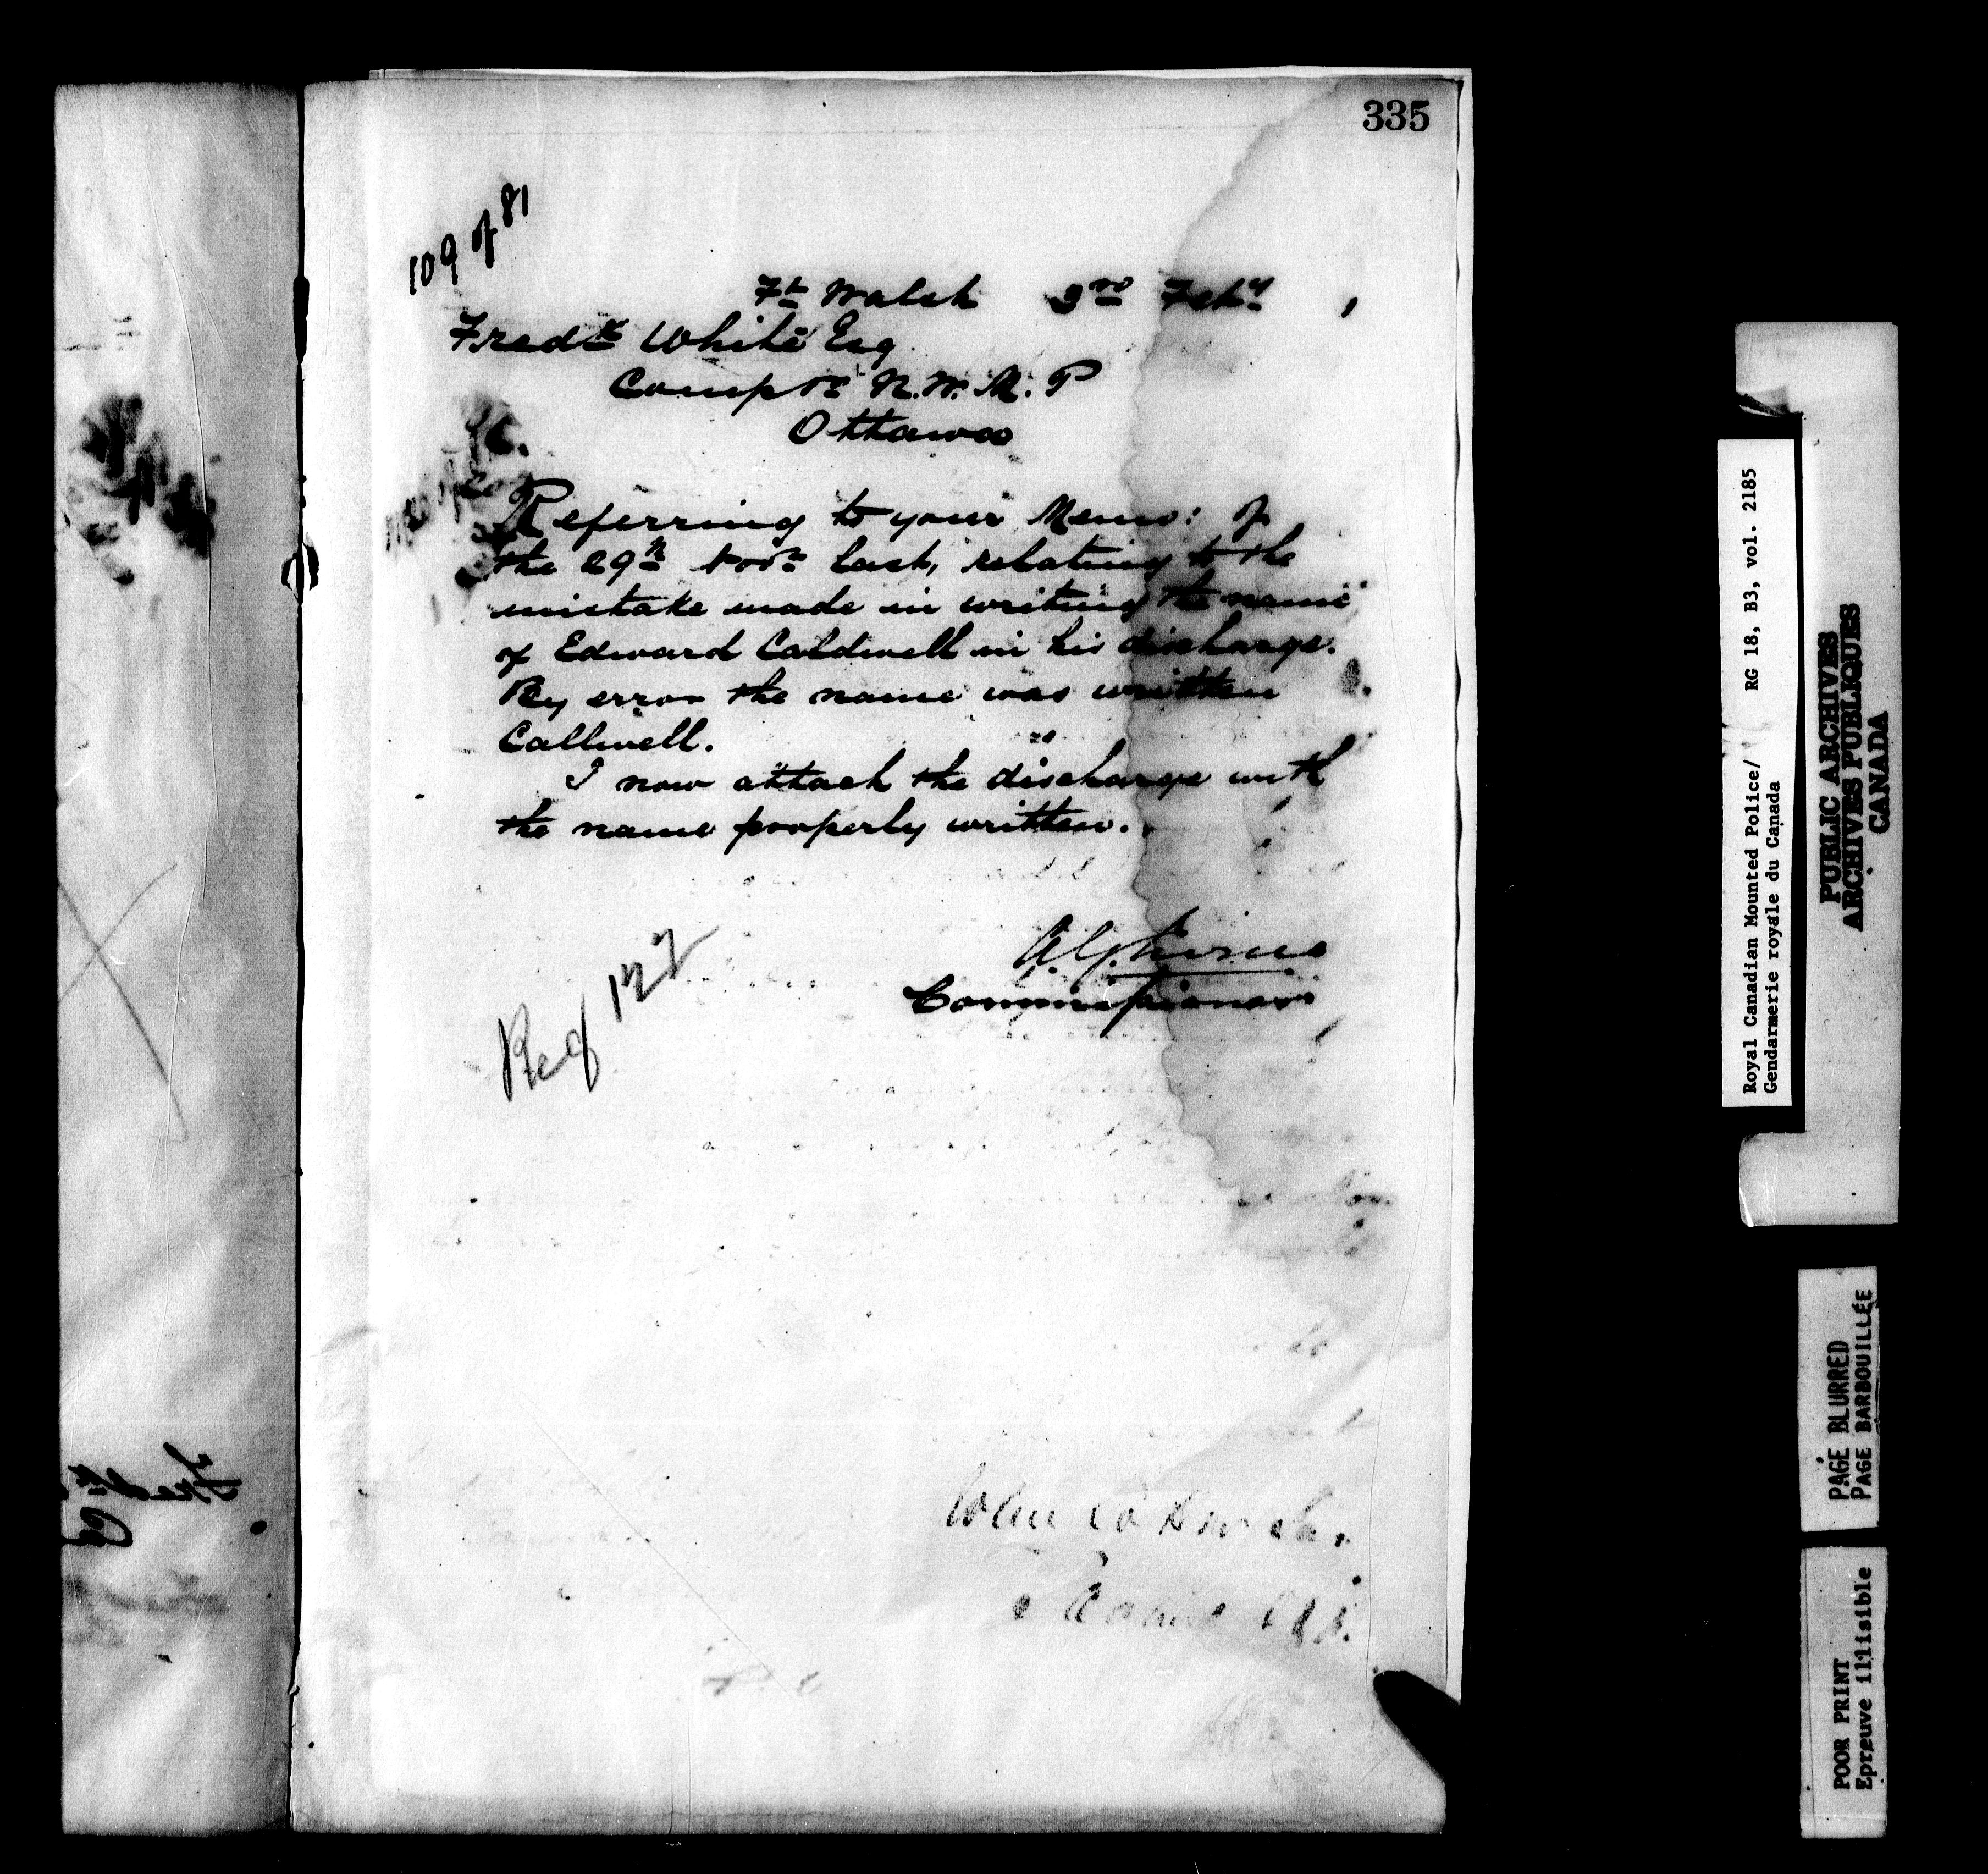 335
109 of 81
Ft Walsh 2nd Feby
Fredk White Esq
Comptr N.W.M.P
Ottawa
Referring to your Memo: of
the 29th last, relating to the
mistake made in writing the name
of Edward Caldwell in his discharge.
By error the name was written
Callwell.
I now attach the discharge with
the name properly written.
A.G. Irvine
Commissioner
Royal Canadian Mounted Police/ RG 18, B3, vol. 2185
Gendarmerie royale du Canada
PUBLIC ARCHIVES
ARCHIVES PUBLIQUES
CANADA
PAGE BLURRED
PAGE BARBOUILLÉE
POOR PRINT
Epreuve illisible